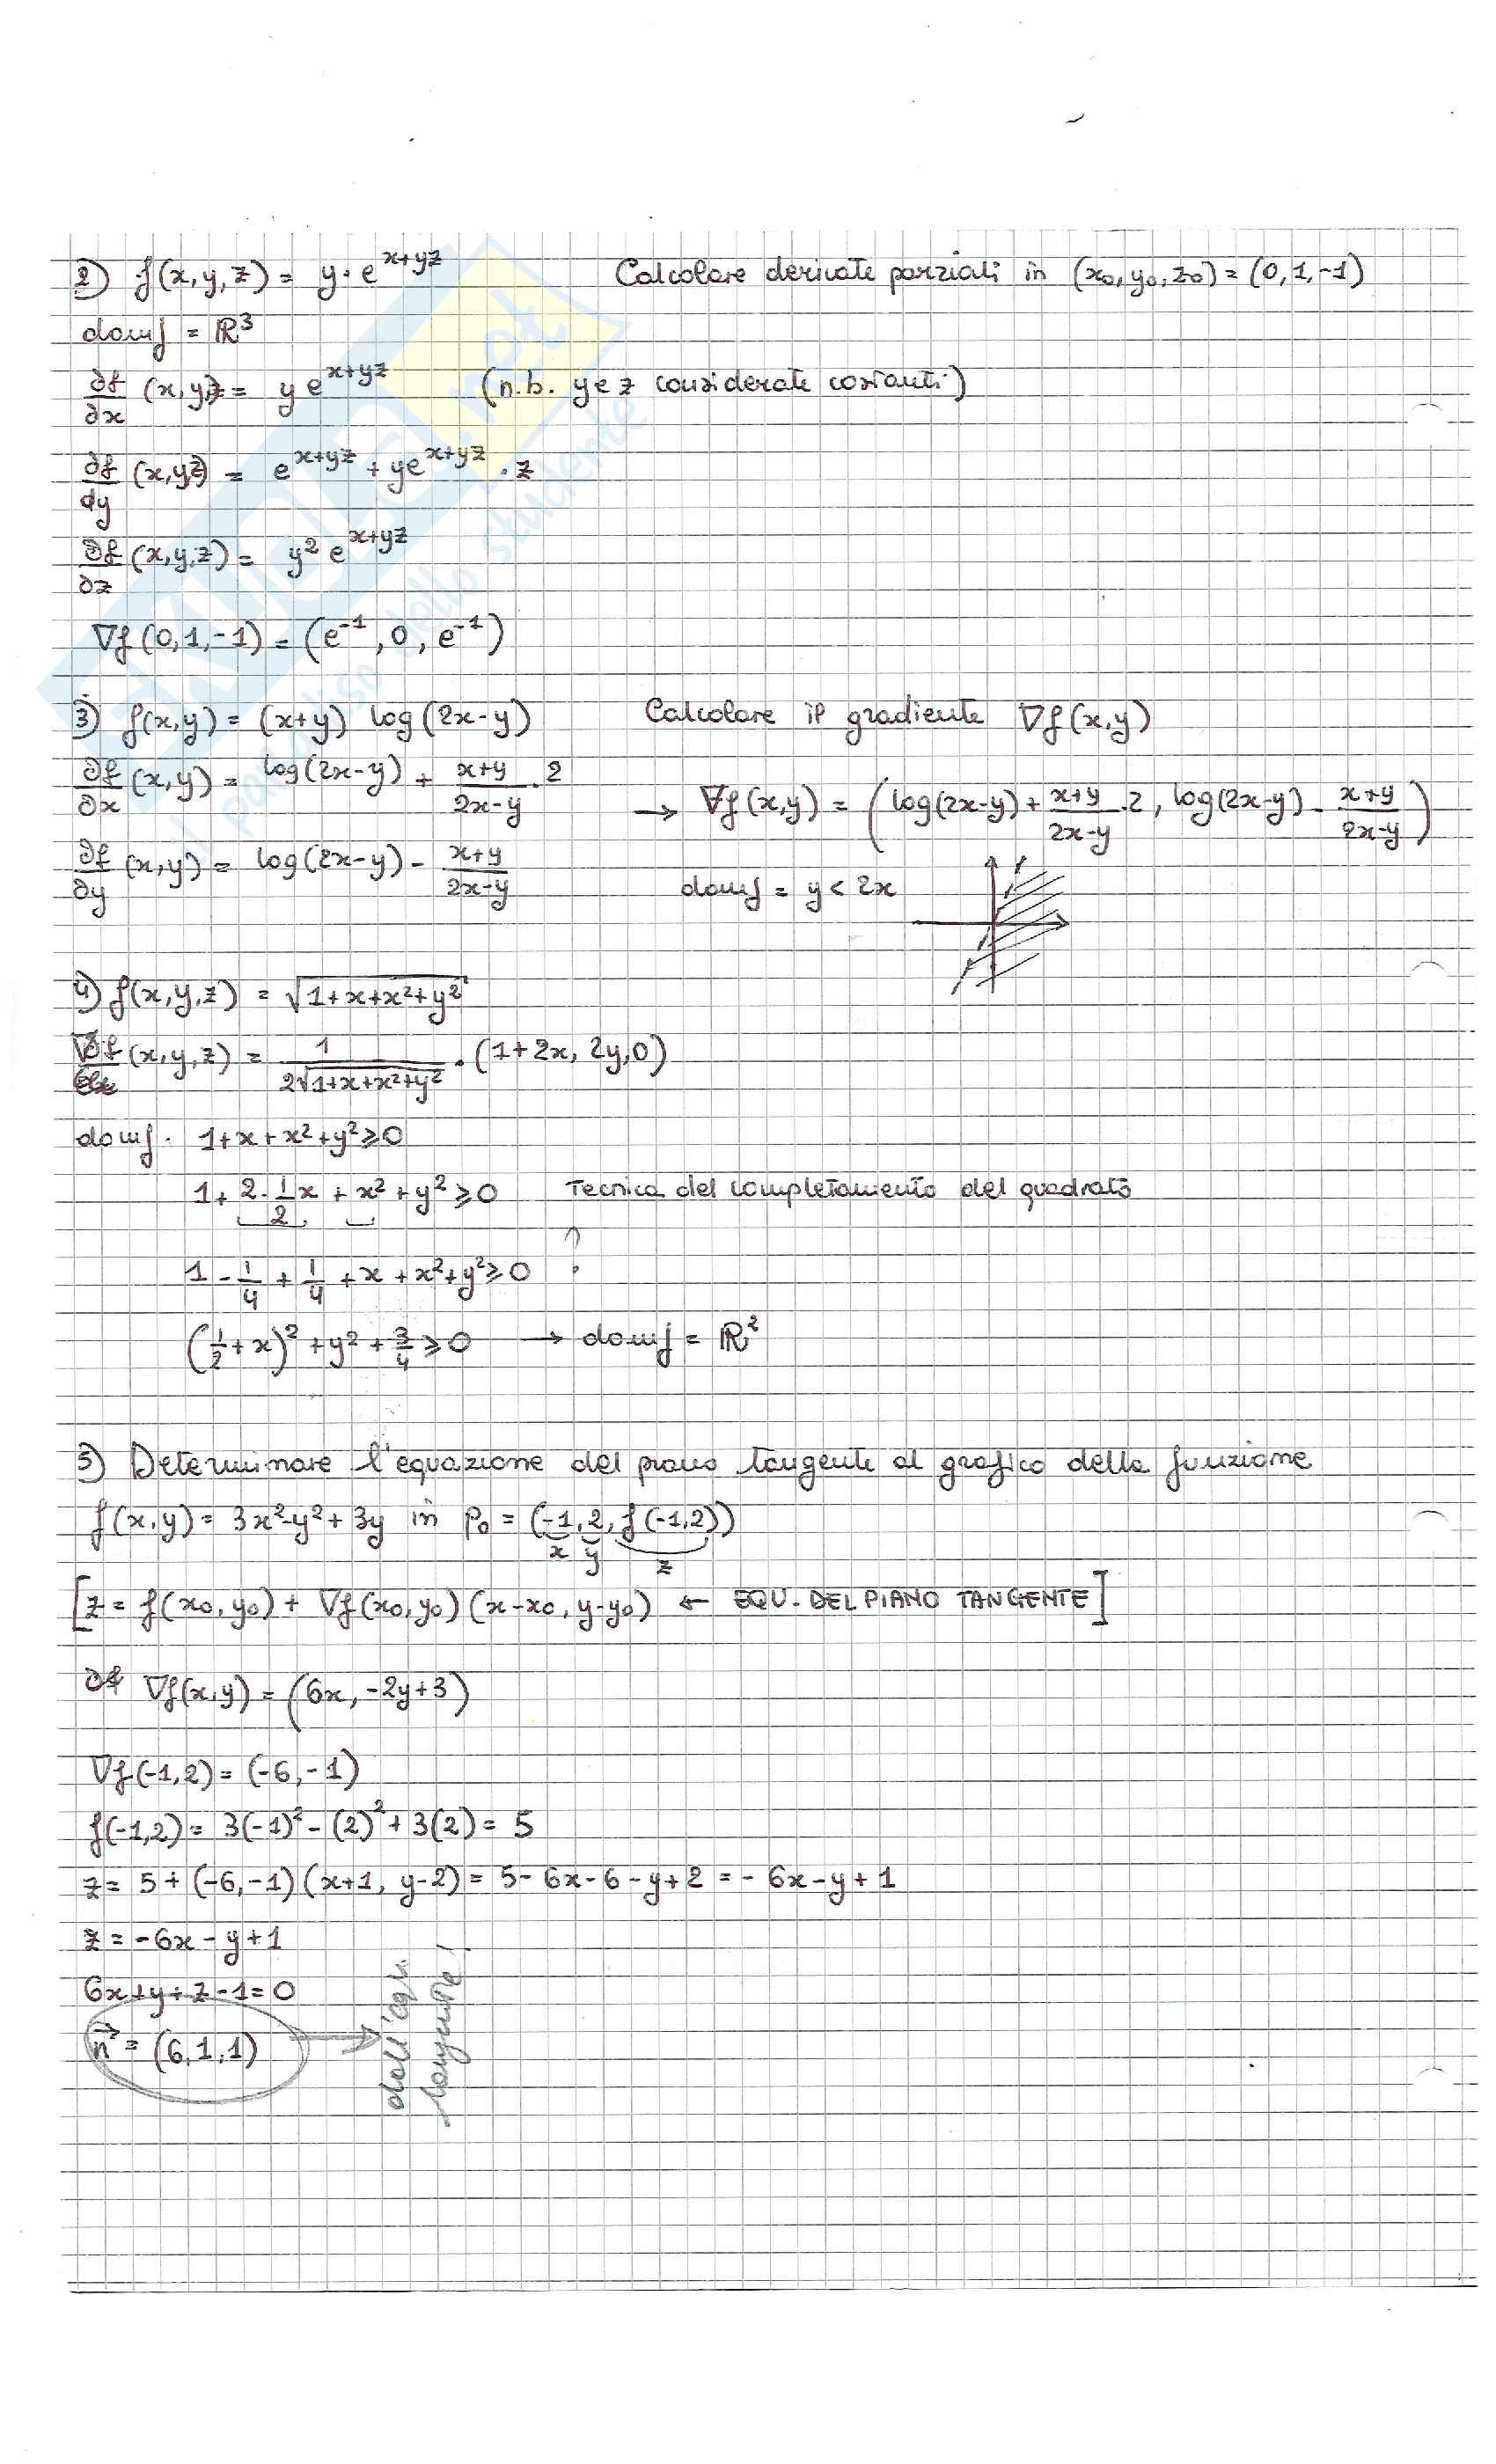 2) f(x,y,z) = y·e^{x+yz} Calcolare derivate parziali in (x₀,y₀,z₀) = (0,1,-1)
domf = ℝ³
∂f/∂x (x,y,z) = y e^{x+yz} (n.b. y e z considerate costanti)
∂f/dy (x,y,z) = e^{x+yz} + ye^{x+yz}·z
∂f/∂z (x,y,z) = y² e^{x+yz}
∇f(0,1,-1) = (e⁻¹, 0, e⁻¹)
3) f(x,y) = (x+y) log(2x-y) Calcolare il gradiente ∇f(x,y)
∂f/∂x (x,y) = log(2x-y) + (x+y)/(2x-y) · 2 → ∇f(x,y) = (log(2x-y) + (x+y)/(2x-y) · 2, log(2x-y) - (x+y)/(2x-y))
∂f/∂y (x,y) = log(2x-y) - (x+y)/(2x-y) domf = y < 2x
4) f(x,y,z) = √(1+x+x²+y²)
∇f (x,y,z) = 1/(2√(1+x+x²+y²)) · (1+2x, 2y, 0)
domf. 1+x+x²+y² ≥ 0
1 + 2·½x + x² + y² ≥ 0 Tecnica del completamento del quadrato
1 - ¼ + ¼ + x + x² + y² ≥ 0
(½ + x)² + y² + ¾ ≥ 0 → domf = ℝ²
5) Determinare l'equazione del piano tangente al grafico della funzione
f(x,y) = 3x²-y²+3y in P₀ = (-1, 2, f(-1,2))
x y z
[z = f(x₀,y₀) + ∇f(x₀,y₀)(x-x₀, y-y₀) ← EQU. DEL PIANO TANGENTE]
∇f(x,y) = (6x, -2y+3)
∇f(-1,2) = (-6,-1)
f(-1,2) = 3(-1)² - (2)² + 3(2) = 5
z = 5 + (-6,-1)(x+1, y-2) = 5 - 6x - 6 - y + 2 = - 6x - y + 1
z = -6x - y + 1
6x + y + z - 1 = 0
n⃗ = (6,1,1) → dall'equ. tangente!
SKUOLA.net
il paradiso dello studente